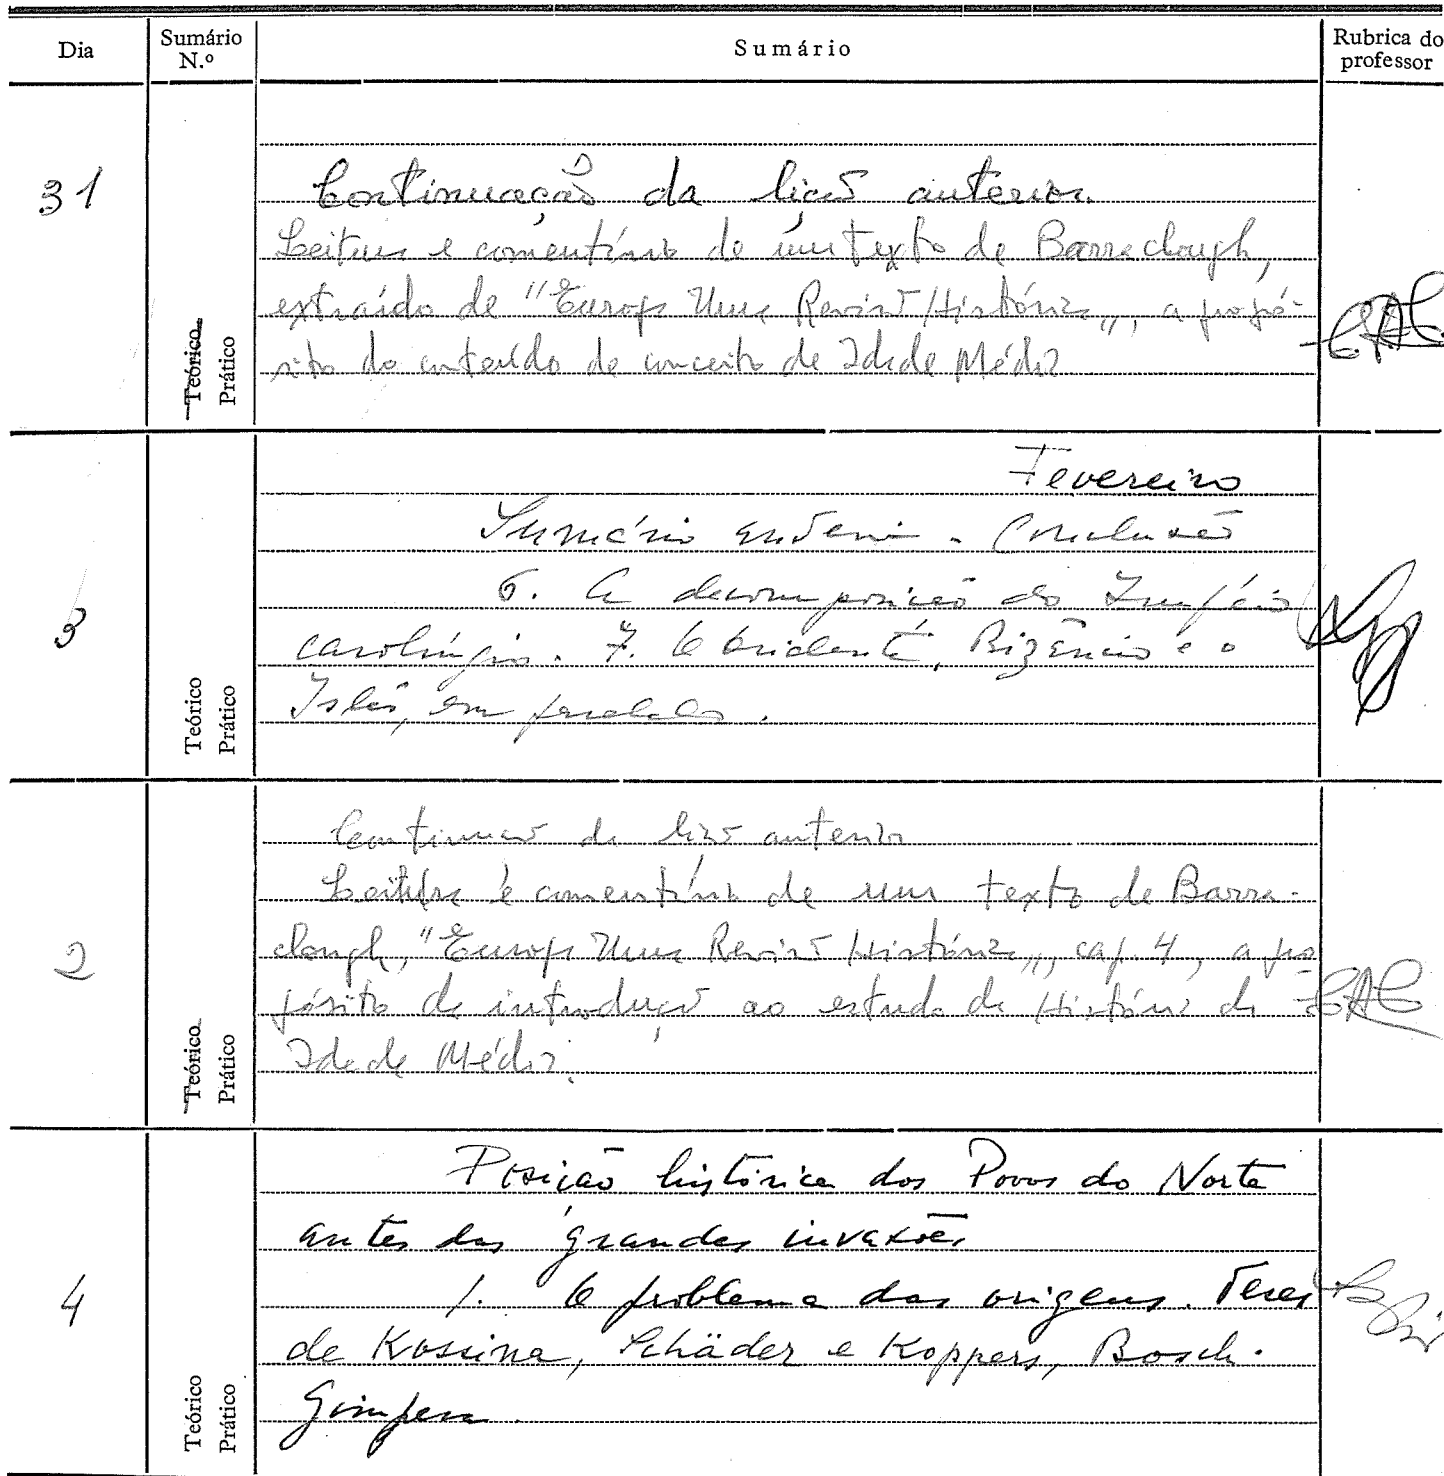 Dia
Sumário N.º
Sumário
Rubrica do professor
31
Teórico
Prático
Continuação da lição anterior.
Leitura e comentário de um texto de Barraclough,
extraído de "Europa Uma Revisão Histórica", a propó-
sito do conteúdo de conceito de Idade Média
3
Teórico
Prático
Fevereiro
Sumário anterior. Conclusão
6. A decomposição do Império
carolíngio. 7. O Ocidente, Bizâncio e o
Islão, em paralelo.
2
Teórico
Prático
Continuação da lição anterior
Leitura e comentário de um texto de Barra-
clough, "Europa Uma Revisão Histórica", cap. 4, a pro
pósito da introdução ao estudo da História da
Idade Média.
4
Teórico
Prático
Posição histórica dos Povos do Norte
antes das grandes invasões
1. O problema das origens. Teses
de Kossina, Schäder e Koppers, Bosch-
Gimpera.